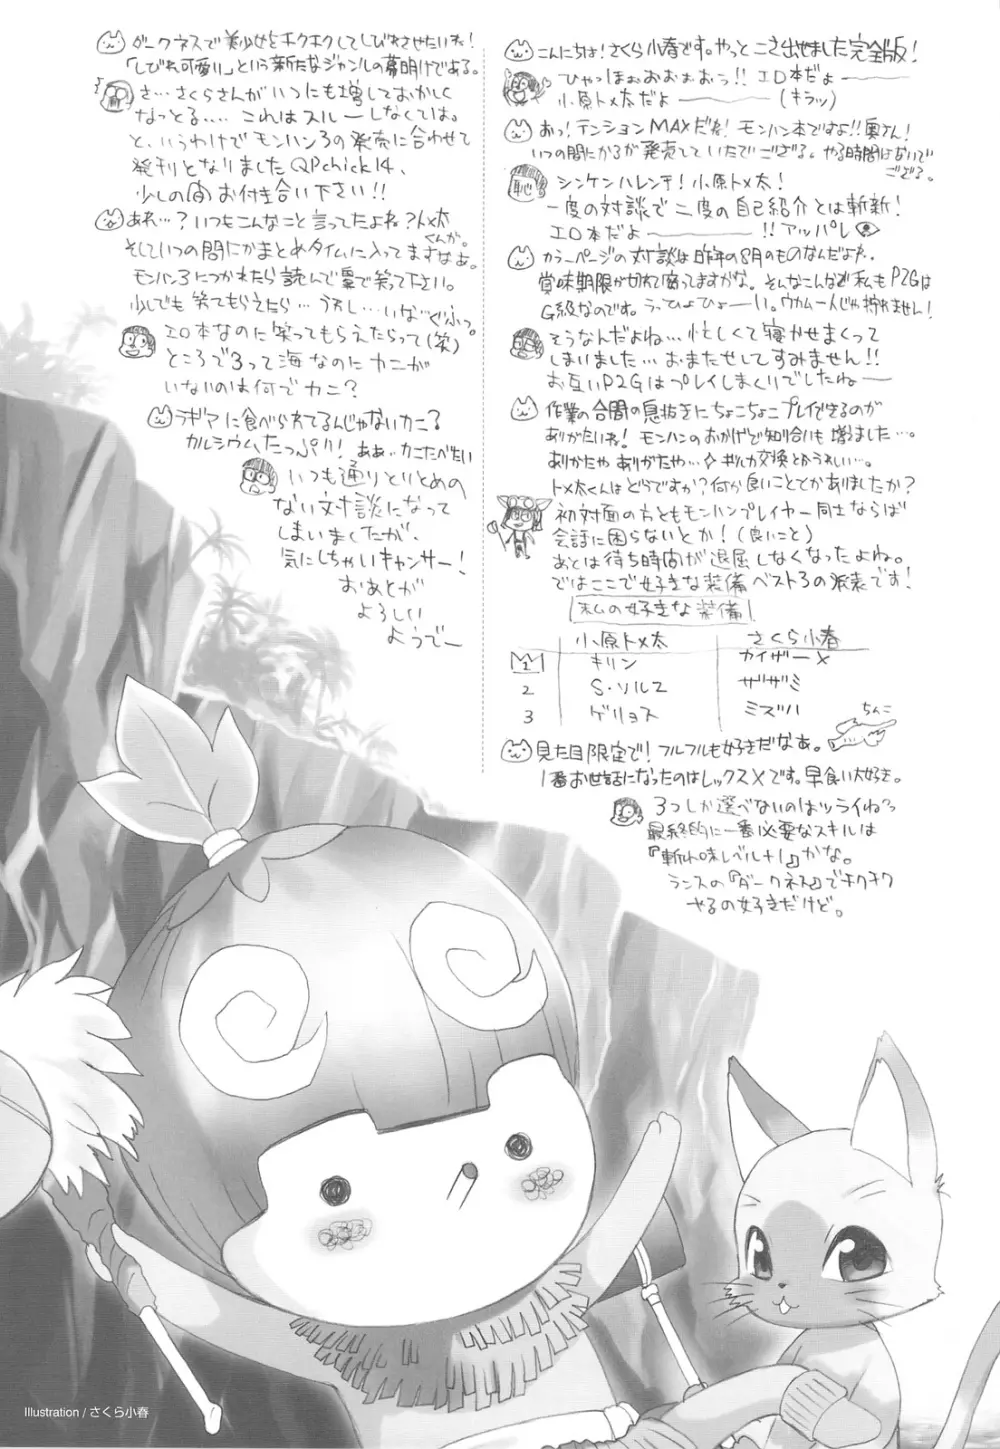 こんにちは！さくら小春です。やっとこさ出せました完全版！
ひゃっほぉおぉぉおっ！！エロ本だよ――――
小原トメ太だよ――――（キラッ）
おっ！テンションMAXだね！モンハン本ですよ！！奥さん！
いつの間にかるが発売していたでござる。やる時間はないで
ござる。
恥
シンケンハレンチ！小原トメ太！
一度の対談で二度の自己紹介とは斬新！
エロ本だよ――――！！アッパレ
カラーページの対談は昨年の8月のものなんだよな‥
賞味期限が切れて腐ってますがな。そんなこんなで私もP2Gは
G級なのです。うっひょひょーい。ウカム一人じゃ狩れません！
そうなんだよね…忙しくて寝かせまくって
しまいました…おまたせしてすみません！！
お互いP2Gはプレイしまくりでしたね――
作業の合間の息抜きにちょこちょこプレイできるのが
ありがたいね！モンハンのおかげで知り合いも増ました…。
ありがたや ありがたや…☆ギルカ交換とかうれしい…。
トメ太くんはどうですか？何か良いことてかありましたか？
初対面の方ともモンハンプレイヤー同士ならば
会話に困らないとか！（良いこと）
あとは待ち時間が退屈しなくなったよね。
ではここで好きな装備ベスト3の発表です！
私の好きな装備
小原トメ太 さくら小春
1 キリン カイザーX
2 S・ソルZ ザザミ
3 ゲリョス ミズハ
ちんこ
見た目限定で！フルフルも好きだなぁ。
1番お世話になったのはレックスXです。早食い大好き。
3つしか選べないのはツライねっ
最終的に一番必要なスキルは
『斬れ味レベル+1』かな。
ランスの『ダークネス』でチクチク
やるの好きだけど。
ダークネスで美少女をチクチクしてしびれさせたいね！
「しびれ可愛い」という新たなジャンルの幕明けである。
さ…さくらさんがいつにも増しておかしく
なっとる.... これはスルーしなくては。
と、いうわけでモンハン3の発売に合わせて
発刊となりました QPchick14、
少しの間お付き合い下さい！！
あれ…？いつもこんなこと言ってたよね？トメ太
くんが。
そしていつの間にかまとめタイムに入ってますなぁ。
モンハン3につかれたら読んで皇で笑って下さい。
少しでも笑てもらえたら…うれし…いな…ぐふっ。
エロ本なのに笑ってもらえたらって（笑）
ところで3って海なのにカニが
いないのは何でカニ？
ラギアに食べられてるんじゃないカニ？
カルシウムたっぷり！ ああ…かにたべたい
いつも通りとりとめの
ない対談になって
しまいましたが、
気にしちゃいキャンサー！
おあとが
よろしい
ようでー
Illustration / さくら小春